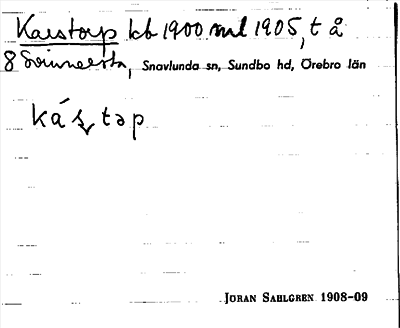 Karstorp kb 1900 ml 1905, t å
8 Sörmesta, Snavlunda sn, Sundbo hd, Örebro län
ká ş təp
JÖRAN SAHLGREN 1908-09